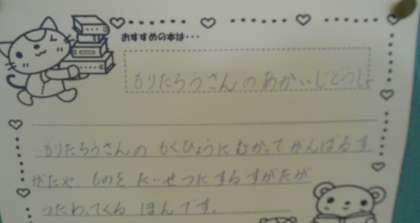 おすすめの本は・・・
もりたろうさんのあかいじどうしゃ
もりたろうさんの もくひょうに むかってがんばるす
がたや、ものを たいせつにするすがたが
つたわってくる ほんです。